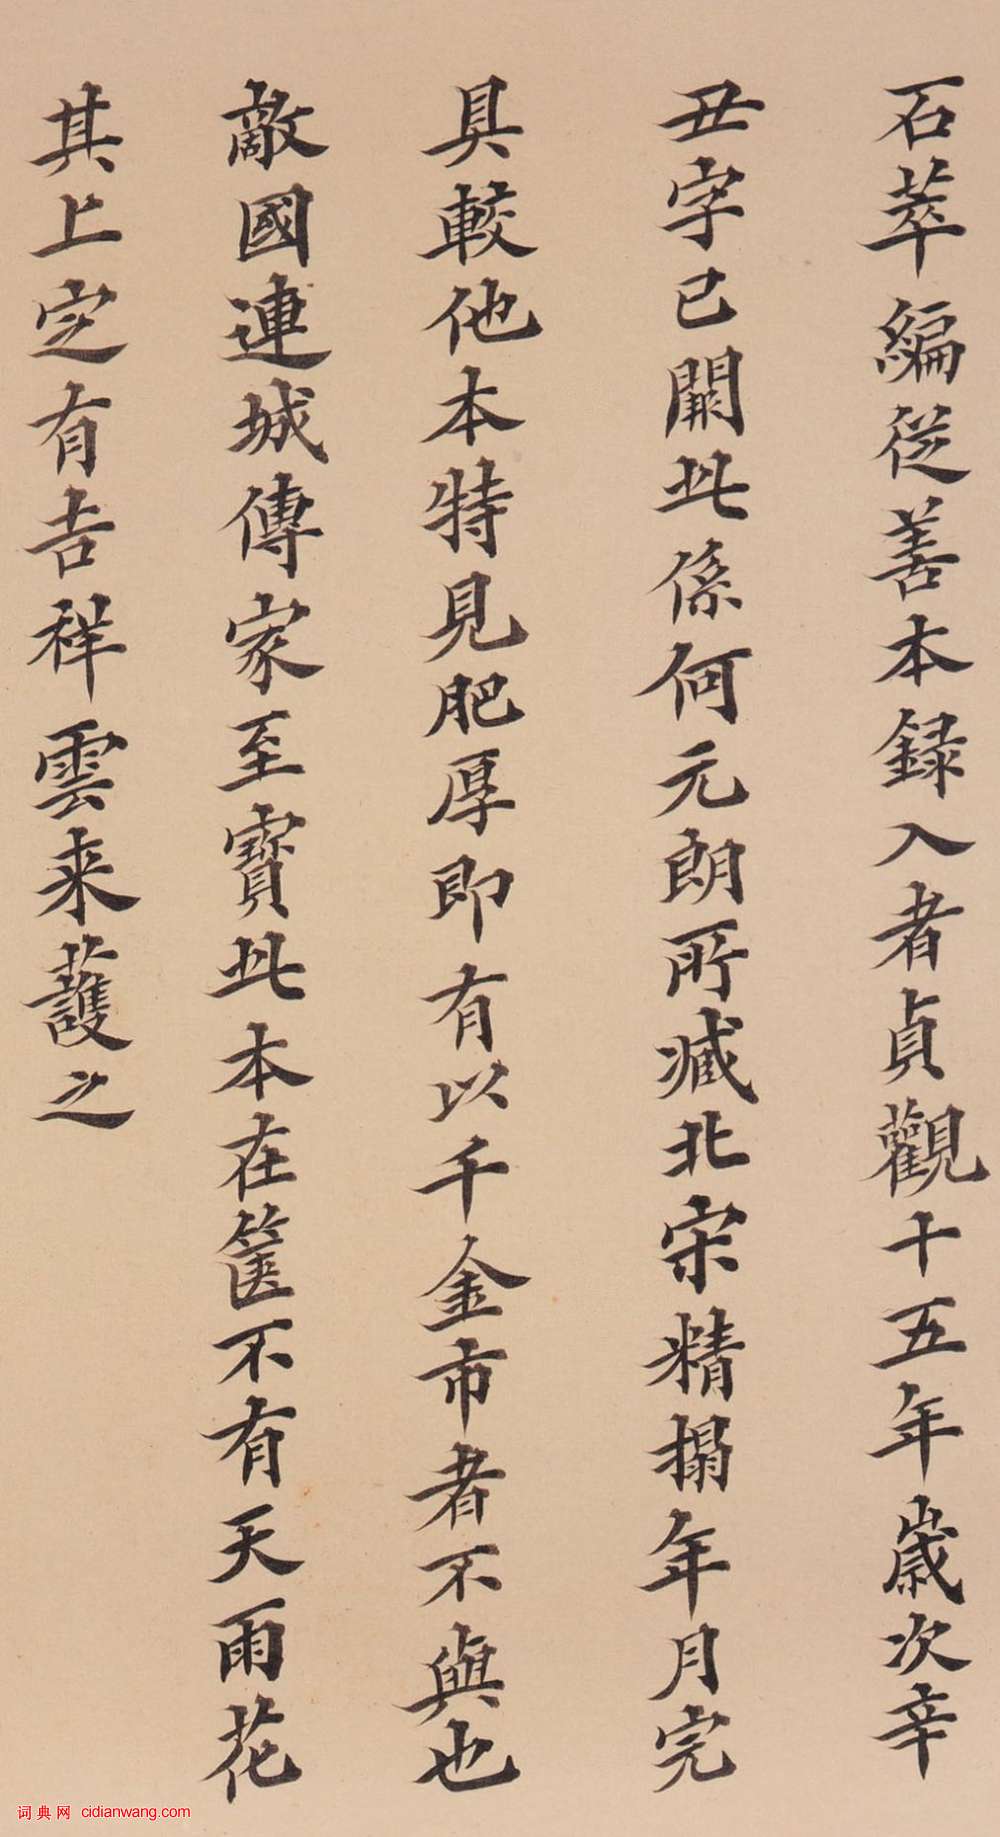 石萃編從善本録入者貞觀十五年歲次辛
丑字已闕此係何元朗所臧北宋精搨年月完
具較他本特見肥厚即有以千金市者不與也
敵國連城傳家至寶此本在篋不有天雨花
其上定有吉祥雲来護之
词典网 cidianwang.com